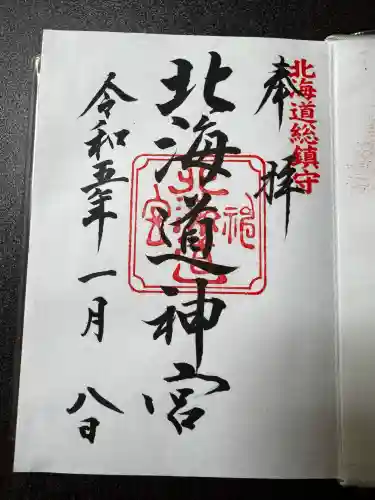 北海道総鎮守
奉拝
北海道神宮
令和五年一月八日